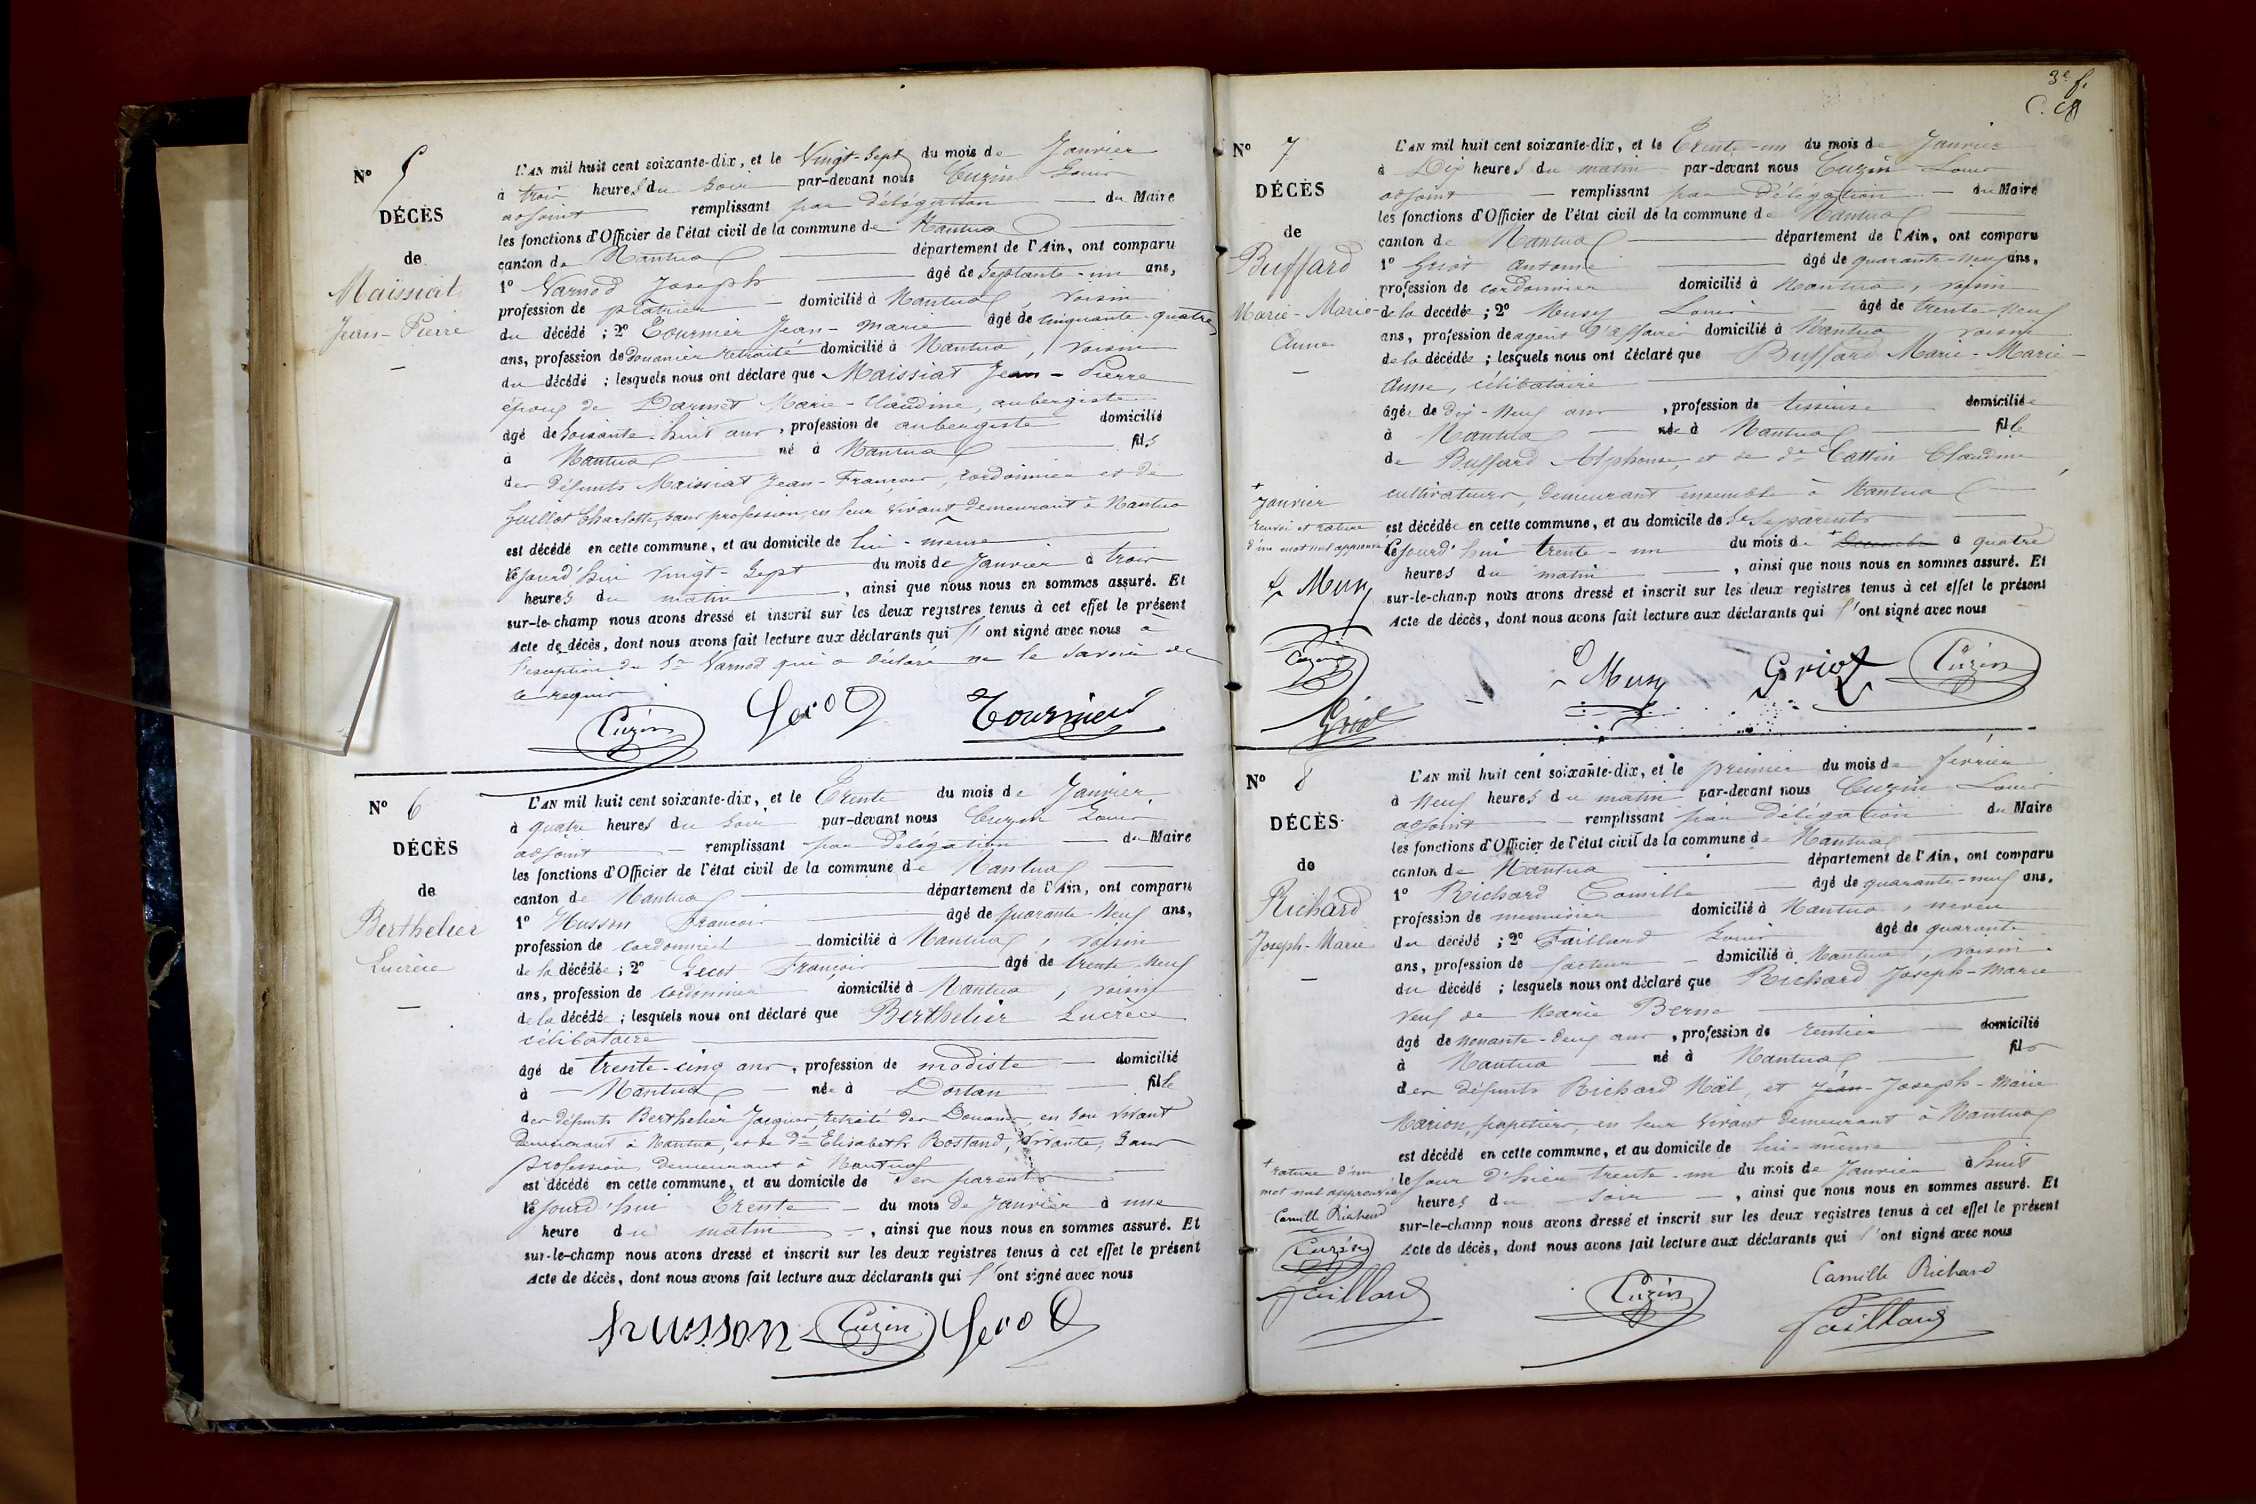 N° 5
DÉCÈS
de
Maissiat
Jean-Pierre
L'AN mil huit cent soixante-dix, et le Vingt-Sept du mois de Janvier
à trois heures du soir par-devant nous Cuzin Louis
adjoint remplissant par délégation du Maire
les fonctions d'Officier de l'état civil de la commune de Nantua
canton de Nantua département de l'Ain, ont comparu
1° Varnod Joseph âgé de Septante-un ans,
profession de plâtrier domicilié à Nantua, voisin
du décédé ; 2° Tournier Jean-Marie âgé de cinquante-quatre
ans, profession de Douanier retraité domicilié à Nantua, voisin
du décédé ; lesquels nous ont déclaré que Maissiat Jean-Pierre
époux de Darmet Marie-Claudine, aubergiste
âgé de Soixante-huit ans, profession de aubergiste domicilié
à Nantua né à Nantua fils
des défunts Maissiat Jean-François, cordonnier et de
Guillot Charlotte, sans profession, en leur vivant demeurant à Nantua
est décédé en cette commune, et au domicile de lui-même
cejourd'hui vingt-Sept du mois de Janvier à trois
heures du matin, ainsi que nous nous en sommes assuré. Et
sur-le-champ nous avons dressé et inscrit sur les deux registres tenus à cet effet le présent
Acte de décès, dont nous avons fait lecture aux déclarants qui l'ont signé avec nous à
l'exception du Sr Varnod qui a déclaré ne le savoir de
ce requis
Cuzin Tournier
N° 6
DÉCÈS
de
Berthelier
Lucrèce
L'AN mil huit cent soixante-dix, et le Trente du mois de Janvier
à quatre heures du soir par-devant nous Cuzin Louis
adjoint remplissant par délégation du Maire
les fonctions d'Officier de l'état civil de la commune de Nantua
canton de Nantua département de l'Ain, ont comparu
1° Husson François âgé de quarante-neuf ans,
profession de cordonnier domicilié à Nantua, voisin
de la décédée ; 2° Secot François âgé de trente neuf
ans, profession de cordonnier domicilié à Nantua, voisin
de la décédée ; lesquels nous ont déclaré que Berthelier Lucrèce
célibataire
âgé de trente-cinq ans, profession de modiste domicilié
à Nantua née à Dortan fille
des défunts Berthelier Jacques, retraité des Douanes, en son vivant
demeurant à Nantua, et de de Elisabeth Rostand, vivante, sans
profession, demeurant à Nantua
est décédé en cette commune, et au domicile de ses parents
cejourd'hui Trente du mois de Janvier à une
heure du matin, ainsi que nous nous en sommes assuré. Et
sur-le-champ nous avons dressé et inscrit sur les deux registres tenus à cet effet le présent
Acte de décès, dont nous avons fait lecture aux déclarants qui l'ont signé avec nous
husson Cuzin
3e f.
N° 7
DÉCÈS
de
Buffard
Marie-Marie-
Anne
L'AN mil huit cent soixante-dix, et le Trente-un du mois de Janvier
à Dix heures du matin par-devant nous Cuzin Louis
adjoint remplissant par délégation du Maire
les fonctions d'Officier de l'état civil de la commune de Nantua
canton de Nantua département de l'Ain, ont comparu
1° Griot Antoine âgé de quarante-neuf ans,
profession de cordonnier domicilié à Nantua, voisin
de la decédée ; 2° Musy Louis âgé de trente-neuf
ans, profession de agent d'affaires domicilié à Nantua, voisin
de la décédée ; lesquels nous ont déclaré que Buffard Marie-Marie-
Anne, célibataire
âgée de dix-neuf ans, profession de tisseuse domiciliée
à Nantua née à Nantua fille
de Buffard Alphonse, et de de Cattin Claudine,
cultivateurs, demeurant ensemble à Nantua
est décédée en cette commune, et au domicile de Ses parents
cejourd'hui trente-un du mois de + Décembre à quatre
heures du matin, ainsi que nous nous en sommes assuré. Et
sur-le-champ nous avons dressé et inscrit sur les deux registres tenus à cet effet le présent
Acte de décès, dont nous avons fait lecture aux déclarants qui l'ont signé avec nous
+ Janvier
renvoi et rature
d'un mot nul approuvé
L Musy
Cuzin
Griot
L Musy Griot Cuzin
N° 8
DÉCÈS
de
Richard
Joseph-Marie
L'AN mil huit cent soixante-dix, et le premier du mois de février
à neuf heures du matin par-devant nous Cuzin Louis
adjoint remplissant par délégation du Maire
les fonctions d'Officier de l'état civil de la commune de Nantua
canton de Nantua département de l'Ain, ont comparu
1° Richard Camille âgé de quarante-neuf ans,
profession de menuisier domicilié à Nantua, neveu
du decédé ; 2° Faillard Louis âgé de quarante
ans, profession de facteur domicilié à Nantua, voisin
du décédé ; lesquels nous ont déclaré que Richard Joseph-Marie
veuf de Marie Berne
âgé de nonante-deux ans, profession de rentier domicilié
à Nantua né à Nantua fils
des défunts Richard Noël, et Jean-Joseph-Marie
Marion, papetiers, en leur vivant demeurant à Nantua
est décédé en cette commune, et au domicile de lui-même
le jour d'hier trente-un du mois de Janvier à huit
heures du soir, ainsi que nous nous en sommes assuré. Et
sur-le-champ nous avons dressé et inscrit sur les deux registres tenus à cet effet le présent
Acte de décès, dont nous avons fait lecture aux déclarants qui l'ont signé avec nous
+ rature d'un
mot nul approuvée
Camille Richard
Cuzin
Faillard
Cuzin
Camille Richard
Faillard